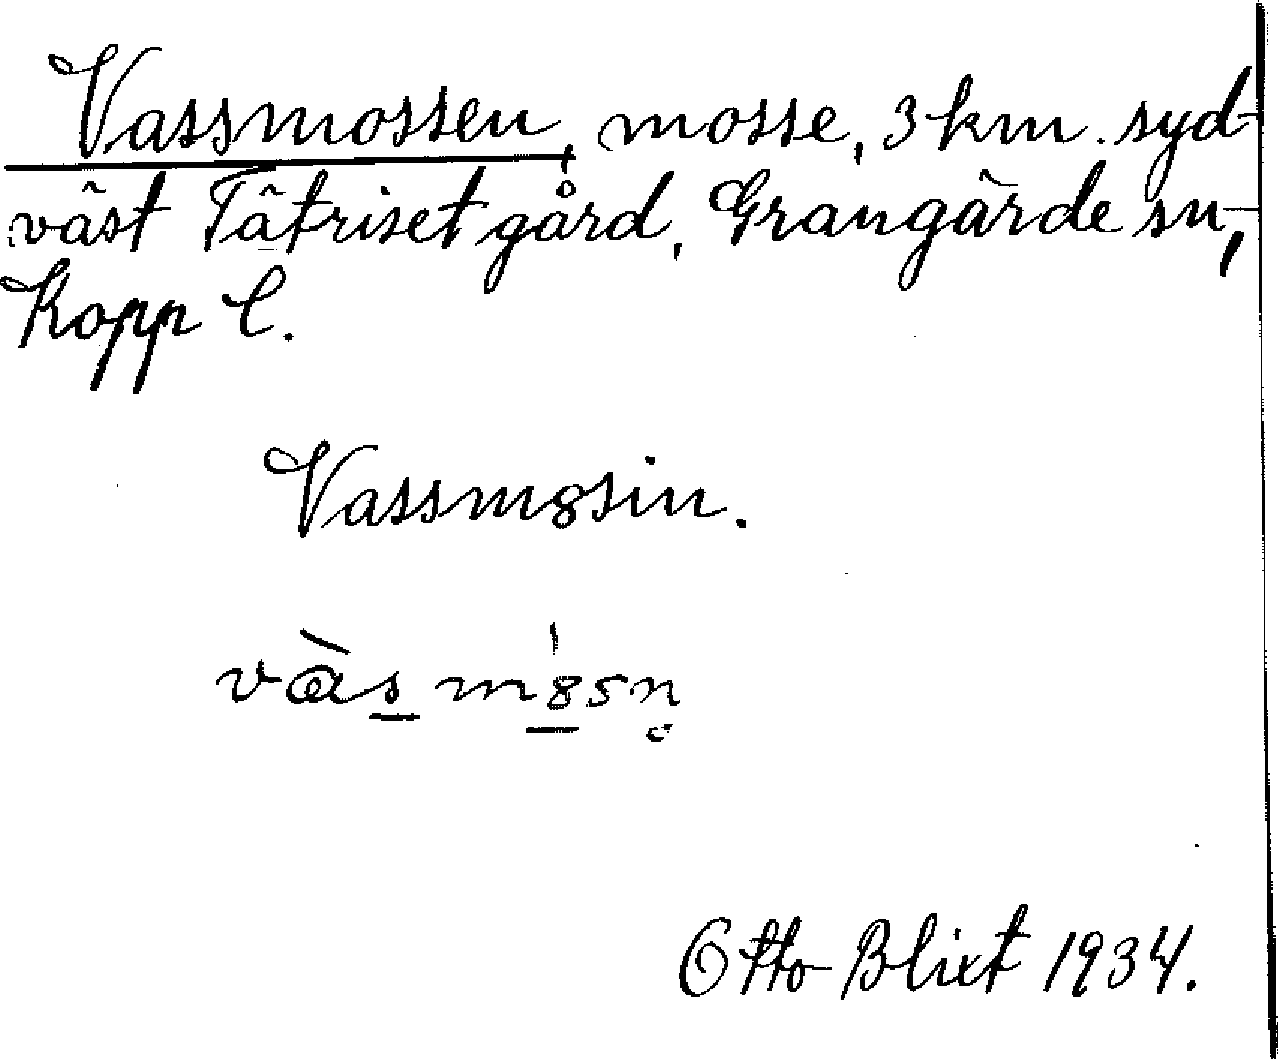 Vassmossen, mosse, 3 km. syd-
väst Täfriset gård, Grangärde sn,
Kopp l.
Vassm8sin.
vàs m8sn̥
Otto Blixt 1934.